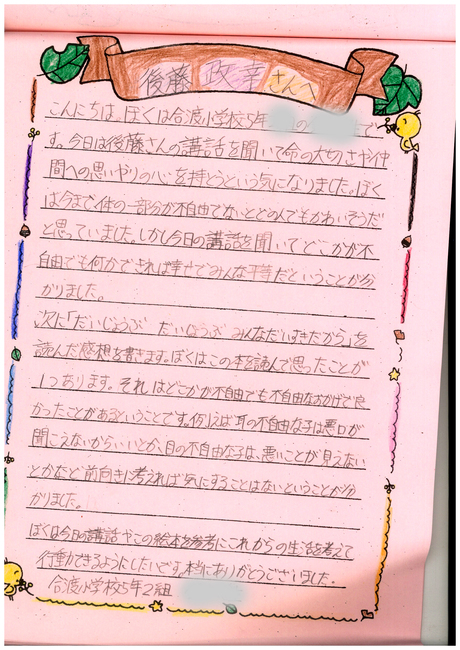 後藤 政幸さんへ
こんにちは。ぼくは合渡小学校5年 の です
す。今日は後藤さんの講話を聞いて命の大切さや仲
間への思いやりの心を持とうという気になりました。ぼく
は今まで体の一部分が不自由でないととのんでもかわいそうだ
と思っていました。しかし今日の講話を聞いてどこかが不
自由でも何かできれば幸せでみんな平等だということが分
かりました。
次に「だいじょうぶ だいじょうぶ みんなだいすきだから」を
読んだ感想を書きます。ぼくはこの本を読んで思ったことが
1つあります。それはどこかが不自由でも不自由なおかげで良
かったことがあるということです。例えば耳の不自由な子は悪口が
聞こえないからいいとか、目の不自由な子は、悪いことが見えない
とかなど前向きに考えれば気にすることはないということが分
かりました。
ぼくは今日の講話やこの絵本を参考にこれからの生活を考えて
行動できるようにしたいです。本当にありがとうございました。
合渡小学校5年2組